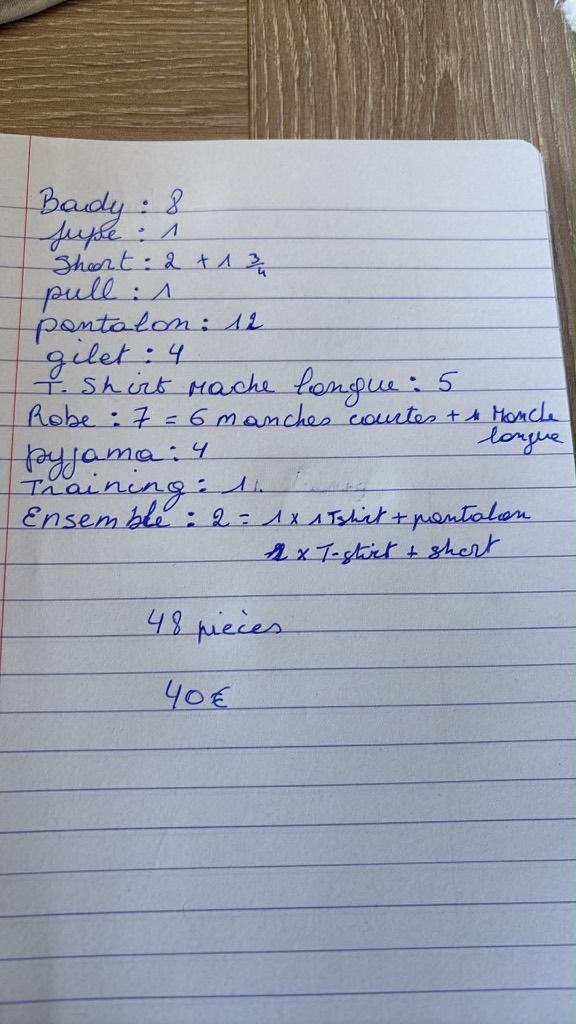 Body : 8
jupe : 1
Short : 2 + 1 3/4
pull : 1
pantalon : 12
gilet : 4
T. Shirt mache longue : 5
Robe : 7 = 6 manches courtes + 1 Manche
longue
pyjama : 4
Training : 1
Ensemble : 2 = 1 x 1 Tshirt + pantalon
1 x T-shirt + short
48 pièces
40€